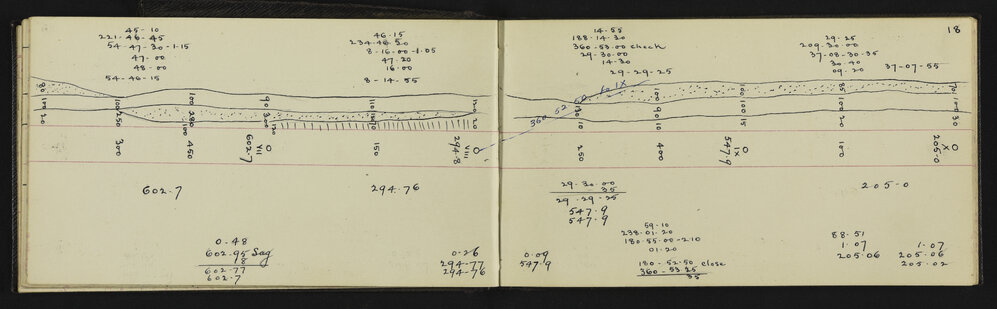 45-10
221-46-45
54-47-30-1.15
47-00
48-00
54-46-15
46.15
234-46-30
8-16-00-1.05
47.20
16.00
8-14-55
80
120
100
250
100
280
100
90
300
120
110
120
20
300
450
O
VII
602.7
150
O
VIII
294.8
602.7
294.76
0.48
602.95 Sag
18
602.77
602.7
0.26
294.77
294.76
18
14-55
188-14-30
360-53-00 check
29-30-00
14-30
29-29-25
29-25
209-30-00
37-08-30-35
30-40
09-20
37-07-55
360 52 50 to IX
90
10
100
90
10
100
100
15
85
100
20
100
30
250
400
O
IX
547.9
100
O
X
205.0
29-30-00
35
29-29-25
547.9
547.9
205-0
59-10
238-01-20
180-55-00-2.10
01-20
180-52-50 close
360-53.25
35
0.09
547.9
88.51
1.07
205.06
1.07
205.06
205.02